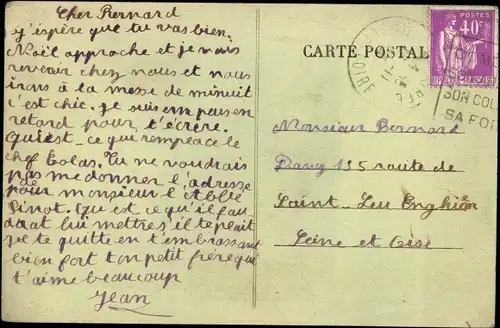 Cher Bernard
j'espère que tu vas bien.
Noël approche et je vais
revenir chez nous et nous
irons à la messe de minuit
c'est chic. Je suis un peu en
retard pour t'écrire.
Qu'est-ce qui remplace le
chef Colas. Tu ne voudrais
pas me donner l'adresse
de
pour monsieur l'abbé
Pinot. Qu'est ce qu'il fau
drait lui mettre s'il te plait
je te quitte en t'embrassant
bien fort ton petit frère qui
t'aime beaucoup
Jean
CARTE POSTALE
POSTES
40c
LOIRE
SON COL
SA FOR
Monsieur Bernard
135 route de
Saint-Leu Enghien
Seine et Oise